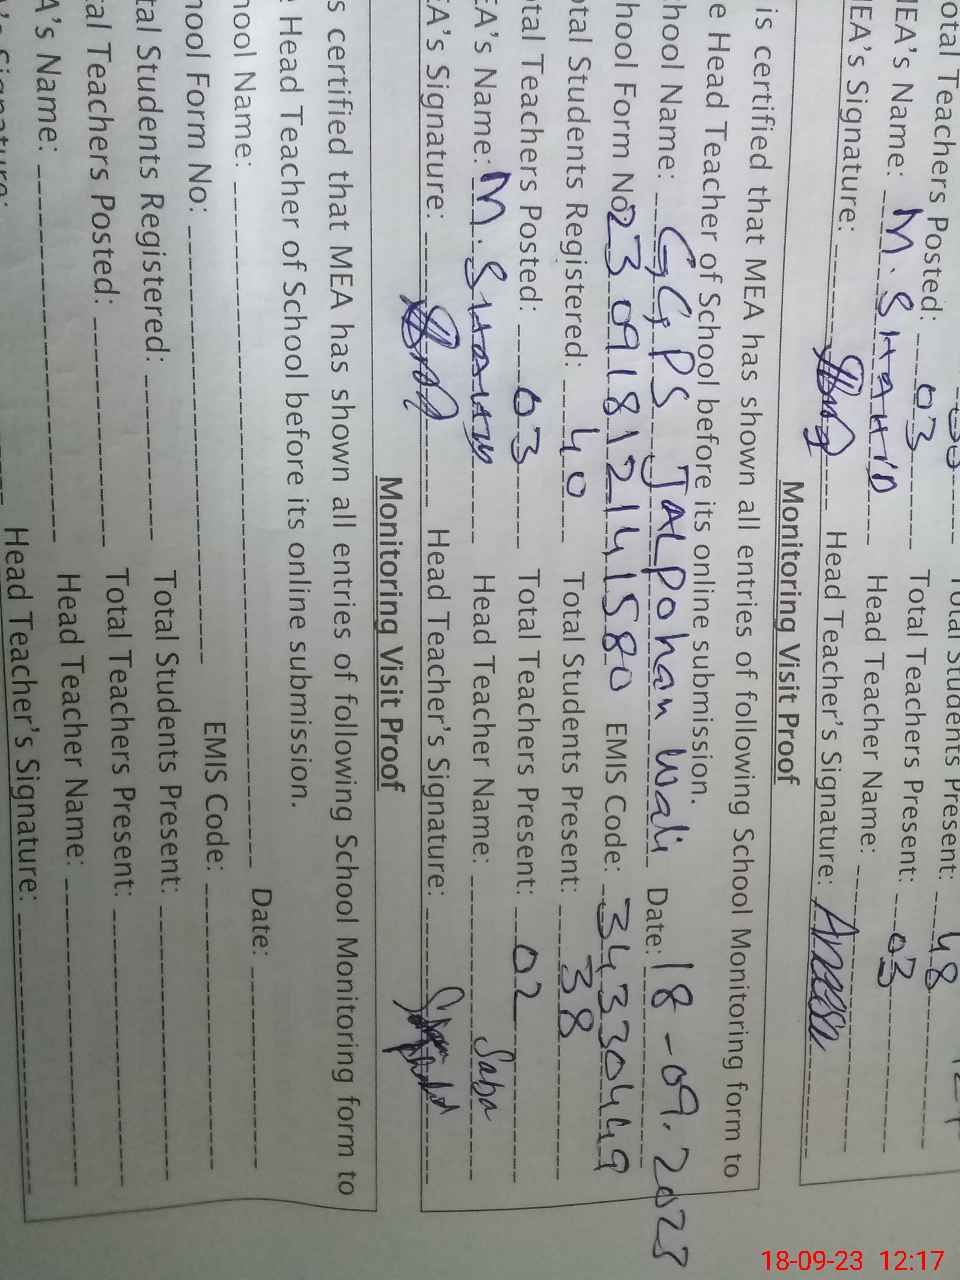 otal Teachers Posted: 03 Total Students Present: 48
MEA's Name: M. SHAHID Total Teachers Present: 03
MEA's Signature: Head Teacher Name:
Head Teacher's Signature:
Monitoring Visit Proof
is certified that MEA has shown all entries of following School Monitoring form to
e Head Teacher of School before its online submission.
chool Name: GGPS JALPOhan Wali Date: 18-09-2023
hool Form No 23091812141580 EMIS Code: 34330449
otal Students Registered: 40 Total Students Present: 38
otal Teachers Posted: 03 Total Teachers Present: 02
EA's Name: M. Head Teacher Name: Saba
EA's Signature: Head Teacher's Signature:
Monitoring Visit Proof
s certified that MEA has shown all entries of following School Monitoring form to
e Head Teacher of School before its online submission.
hool Name: Date:
hool Form No: EMIS Code:
tal Students Registered: Total Students Present:
tal Teachers Posted: Total Teachers Present:
A's Name: Head Teacher Name:
Head Teacher's Signature:
18-09-23 12:17